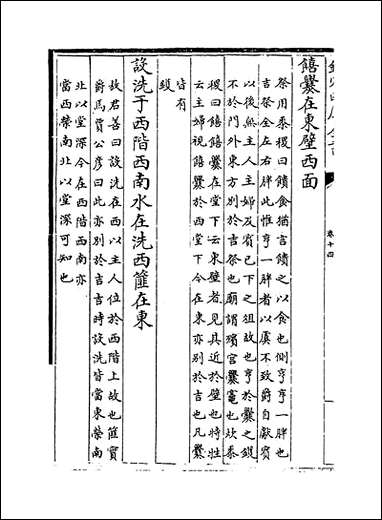 欽定四庫全書
卷十四
饎爨在東壁西面
祭用黍稷曰饋食猶言饋之以食也側亨亨一胖也
吉祭全左右胖此惟亨一胖者以虞不致爵自獻賓
以後無主人主婦及賓已下之俎故也亨於爨之鑊
不於門外東方别於吉祭也廟謂殯宫爨竈也炊黍
稷曰饎饎爨在堂下云東壁者見其近於壁也特牲
云主婦視饎爨於西堂下今在東亦别於吉也凡爨
皆有
鑊
設洗于西階西南水在洗西篚在東
敖君善曰設洗在西以主人位於西階上故也篚實
爵焉賈公彦曰此亦别於吉吉時設洗皆當東榮南
北以堂深今在西階西南亦
當西榮南北以堂深可知也